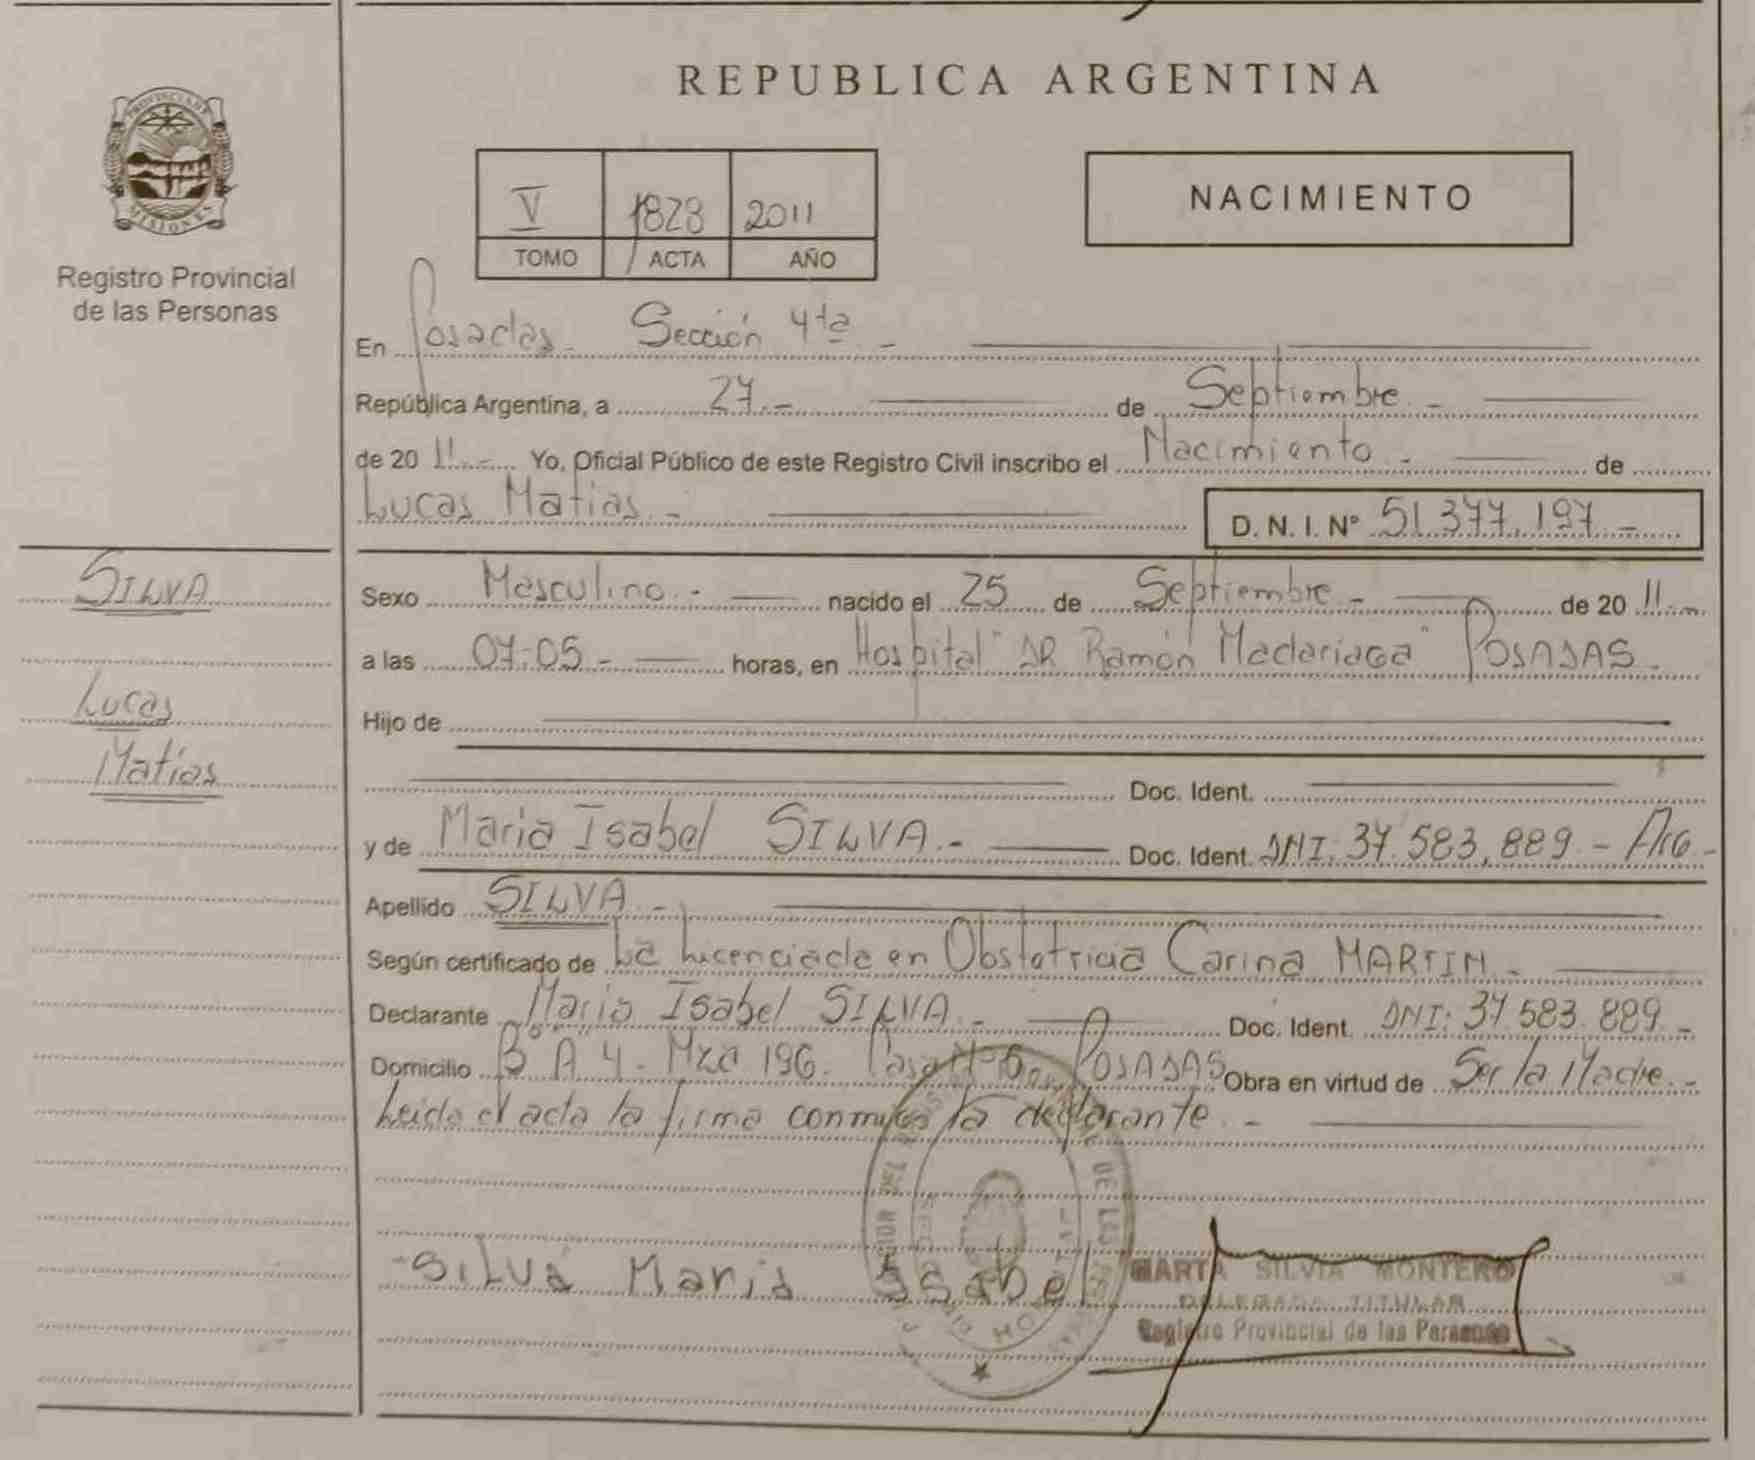 REPUBLICA ARGENTINA
PROVINCIA DE
MISIONES
Registro Provincial
de las Personas
V 1828 2011
TOMO ACTA AÑO
NACIMIENTO
En Posadas - Sección 4ta -
República Argentina, a 27.- de Septiembre. -
de 20 11.- Yo, Oficial Público de este Registro Civil inscribo el Nacimiento. - de
Lucas Matías. - D. N. I. Nº 51.377.197.-
SILVA
Lucas
Matías
Sexo Masculino. - nacido el 25 de Septiembre - de 20 11.-
a las 07:05 - horas, en Hospital "DR Ramón Madariaga" POSADAS.
Hijo de
Doc. Ident.
y de Maria Isabel SILVA. - Doc. Ident. DNI: 37.583.889 - ARG -
Apellido SILVA. -
Según certificado de La Licenciada en Obstetricia Carina MARTIN -
Declarante Maria Isabel SILVA. - Doc. Ident. DNI: 37.583.889. -
Domicilio Bº "A 4 - Mza 196. Casa Nº POSADAS Obra en virtud de Ser la Madre. -
Leida el acta la firma conmigo la declarante. -
Silva Maria Isabel
MARTA SILVIA MONTERO
DELEGADA TITULAR
Registro Provincial de las Personas
DE LAS